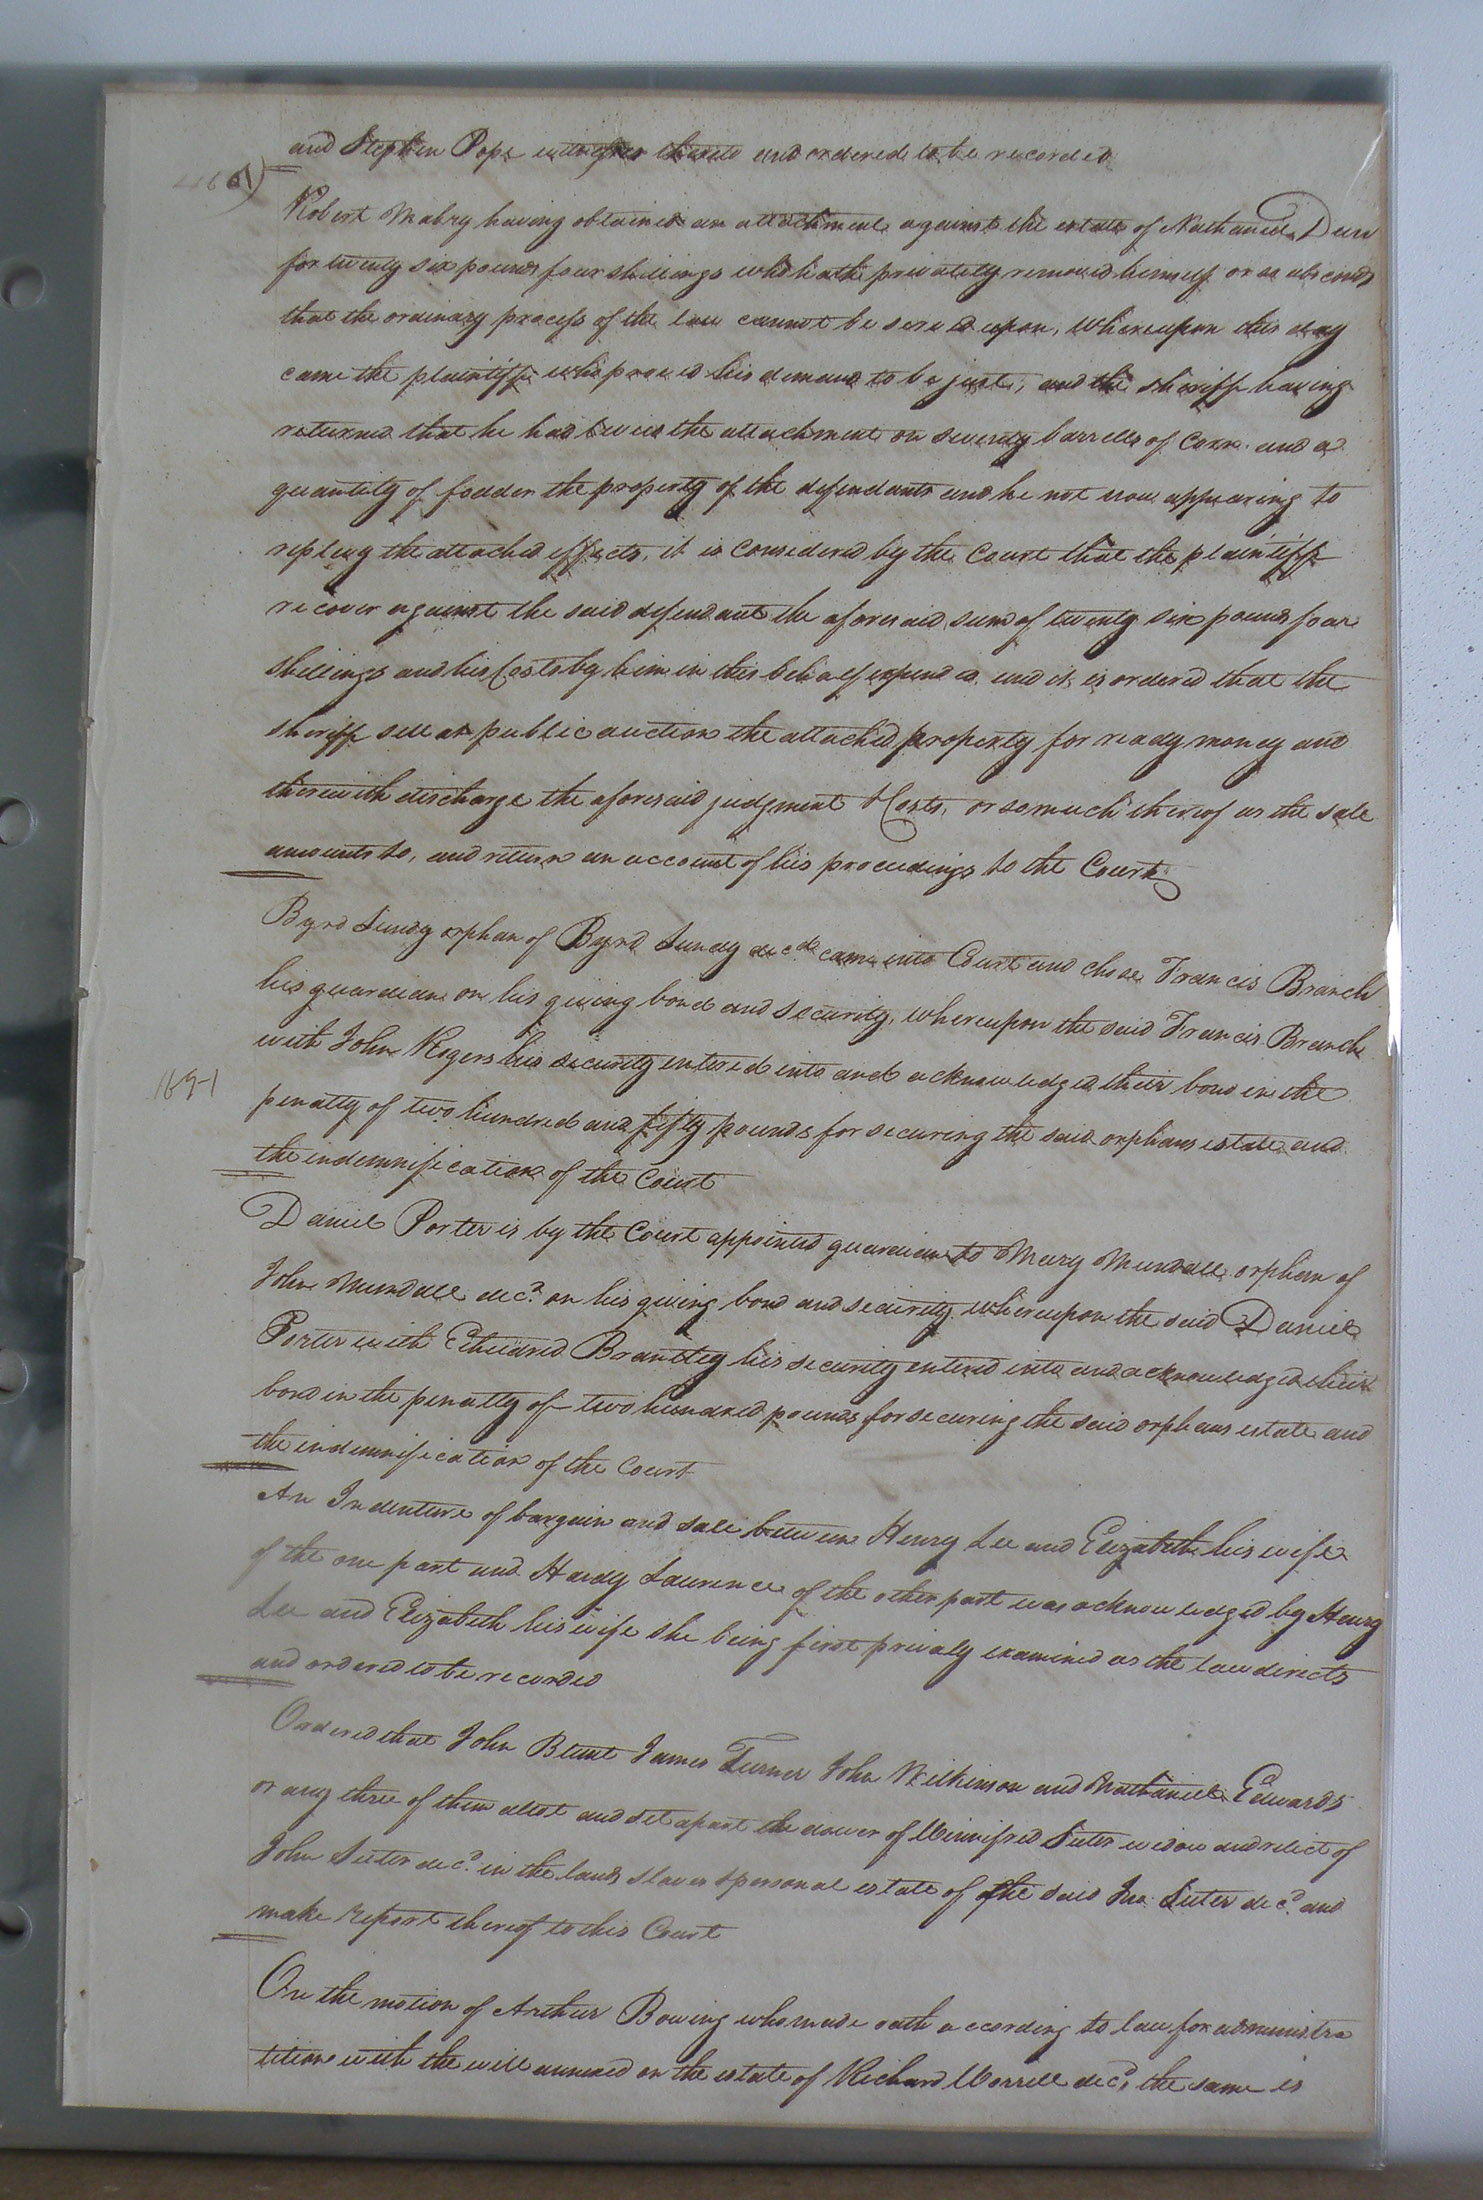 and Stephen Pope witnesses thereto and ordered to be recorded
Robert Mabry having obtained an attachment against the estate of Nathaniel Dun
for twenty six pounds four shillings who hath privately removed himself or so absconds
that the ordinary process of the law cannot be served upon, whereupon this day
came the plaintiff who proved his demand to be just, and the sheriff having
returned that he had served the attachment on seventy barrells of Corn and a
quantity of fodder the property of the defendants and he not now appearing to
replevy the attached effects, it is considered by the Court that the plaintiff
recover against the said defendant the aforesaid sum of twenty six pounds four
shillings and his Costs by him in this behalf expended and it is ordered that the
sheriff sell at public auction the attached property for ready money and
therewith discharge the aforesaid judgment & Costs, or so much thereof as the sale
amounts to, and return an account of his proceedings to the Court
Byrd Lundy orphan of Byrd Lundy decd. came into Court and chose Francis Branch
his guardian on his giving bond and security, whereupon the said Francis Branch
with John Rogers his security entered into and acknowledged their bond in the
169-1
penalty of two hundred and fifty pounds for securing the said orphans estate and
the indemnification of the Court
Daniel Porter is by the Court appointed guardian to Mary Mundall orphan of
John Mundall decd. on his giving bond and security whereupon the said Daniel
Porter with Etheldred Brantley his security entered into and acknowledged their
bond in the penalty of two hundred pounds for securing the said orphans estate and
the indemnification of the Court
An Indenture of bargain and sale between Henry Lee and Elizabeth his wife
of the one part and Hardy Laurence of the other part was acknowledged by Henry
Lee and Elizabeth his wife she being first privaly examined as the law directs
and ordered to be recorded
Ordered that John Blunt James Turner John Wilkinson and Nathaniel Edwards
or any three of them allot and set apart the dower of Winnifred Suter widow and relict of
John Suter decd. in the land slaves & personal estate of the said Jno. Suter decd. and
make report thereof to this Court
On the motion of Arthur Bowing who made oath according to law for administra
tition with the will annexed on the estate of Richard Worrell decd. the same is